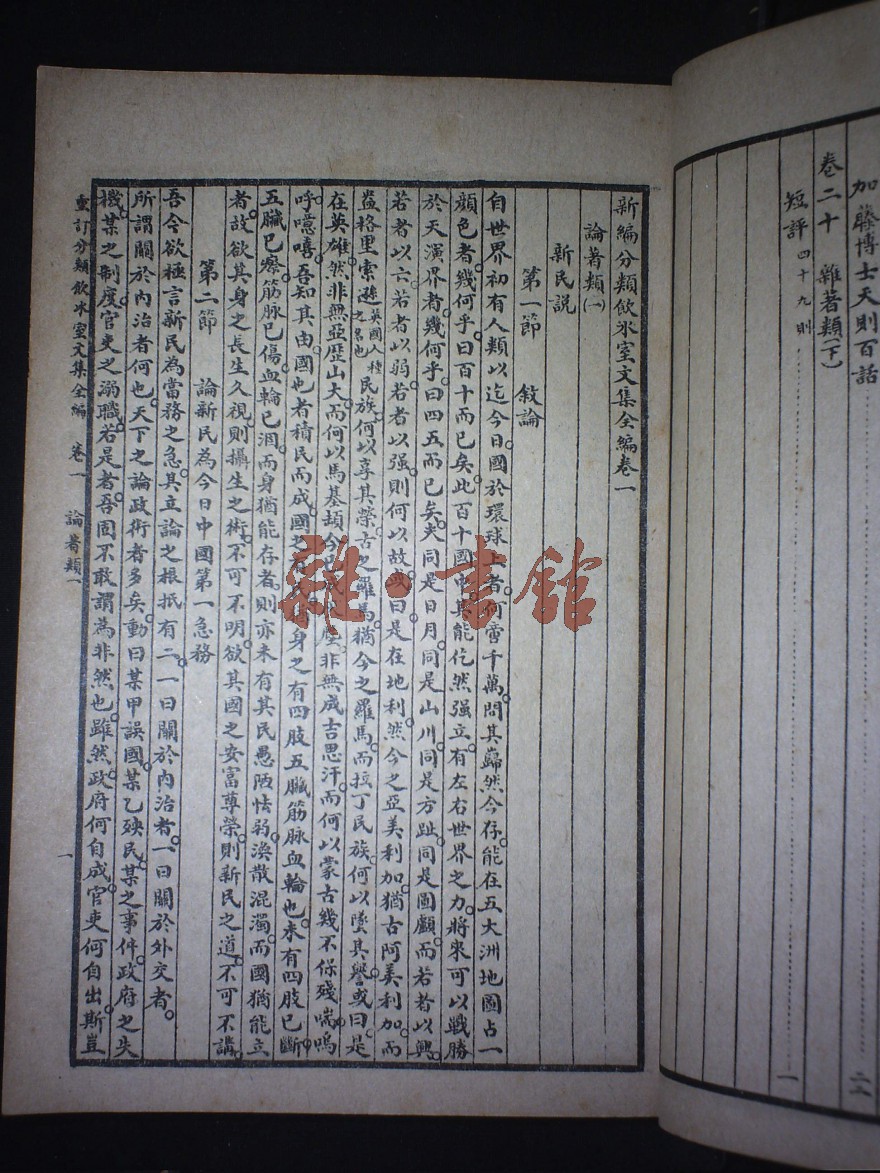 加藤博士天則百話 二十
卷二十 雜著類(下)
短評 四十九則 一
新編分類飲氷室文集全編卷一
論著類(一)
新民説
第一節 敘論
自世界初有人類以迄今日。國於環球上者。何啻千萬。問其巋然今存。能在五大洲地圖占一
顔色者。幾何乎。曰百十而已矣。此百十國中。其能屹然强立。有左右世界之力。將來可以戰勝
於天演界者。幾何乎。曰四五而已矣。夫同是日月。同是山川。同是方趾。同是圓顱。而若者以興。
若者以亡。若者以弱。若者以强。則何以故。或曰。是在地利。然今之亞美利加。猶古阿美利加。而
盎格里索遜英國人種之名也民族。何以享其榮。古之羅馬。猶今之羅馬。而拉丁民族。何以墜其譽。或曰。是
在英雄。然非無亞歷山大。而何以馬基頓今已成灰塵。非無成吉思汗。而何以蒙古幾不保殘喘。嗚
呼。噫嘻。吾知其由。國也者積民而成。國之有民。猶身之有四肢五臟筋脉血輪也。未有四肢已斷。
五臟已瘵。筋脉已傷。血輪已涸。而身猶能存者。則亦未有其民愚陋怯弱渙散混濁。而國猶能立
者。故欲其身之長生久視。則攝生之術。不可不明。欲其國之安富尊榮。則新民之道。不可不講。
第二節 論新民為今日中國第一急務
吾今欲極言新民為當務之急。其立論之根抵有二。一曰關於內治者。一曰關於外交者。
所謂關於內治者何也。天下之論政術者多矣。動曰某甲誤國。某乙殃民。某之事件。政府之失
機。某之制度。官吏之溺職。若是者。吾固不敢謂為非然也。雖然。政府何自成。官吏何自出。斯豈
重訂分類飲氷室文集全編 卷一 論著類一 一
雜·書館